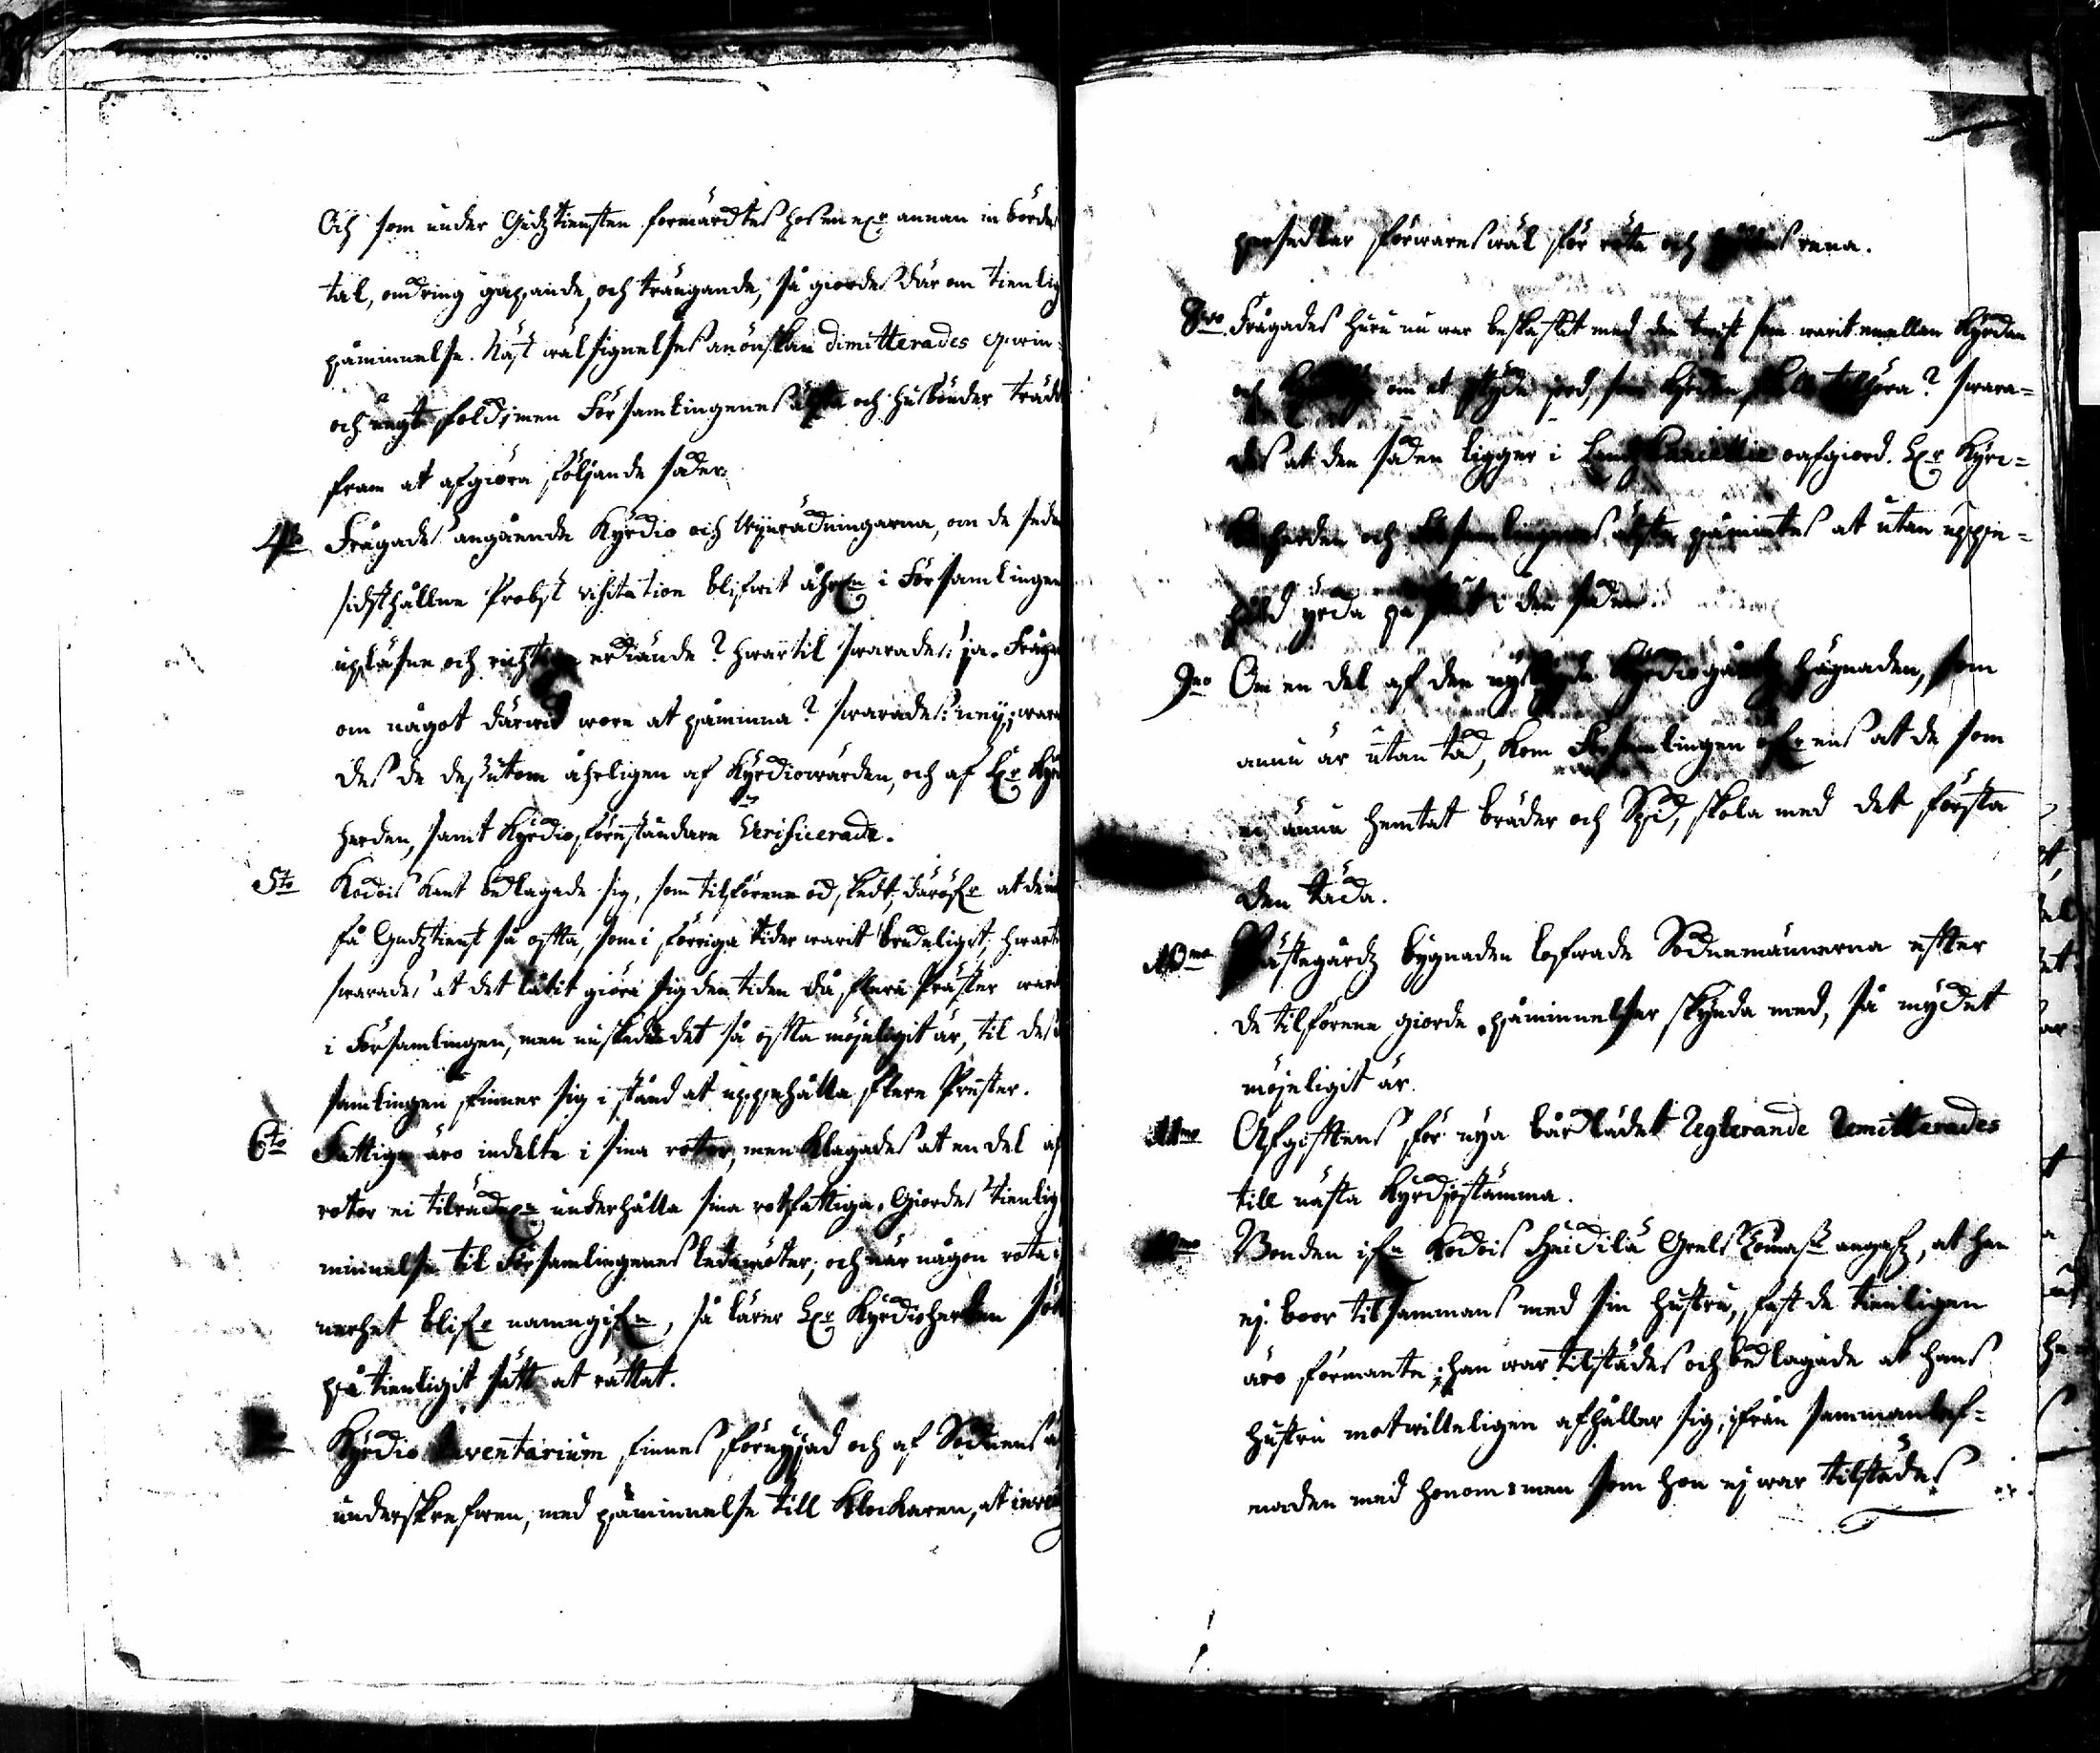 Och som under Gudztiensten formärcktes hos en och annan in bördes
tal, omkring gapande, och trängande, så giordes där om tienlig
påminnelse. Näst wälsignelses anönskan dimitterades qwin-
och ungt folck, men Församlingenes älste och husbönder trädde
fram at afgiöra följande saker.
4to Frågades angående Kyrckio och räkningarna, om de sedan
sidsthållne Probst visitation blifwit åhrl:n i Församlingen
upläsne och richtige erkiände? hwartil swarades: ja. Frågades
om något därwid wore at påminna? swarades: neij; warandes
des de dessutom åhrligen af Kyrckiowärden, och af H:r Kyrckio
herden, samt Kyrckioföreståndare Verificerade.
5to Kackois Kant beklagade sig, som tilförene ock skedt, däröfwer at de ei
få Gudztienst så offta, som i förriga tider warit brukeligit; hwartil
swarades at det låtit giöra sig den tiden då flera Präster warit
i Församlingen, men nu skedde det så offta möjeligit är, til dess
samlingen finner sig i stånd at uppehålla flere Prester.
6to Fattige äro indelte i sina rotar, men klagades at en del af
rotor ei tilräckel:n underhålla sina rotfattiga. Giordes tienlig
minnelse til Församlingenes ledamöter; och när någon rota
nerhet blifwer namngifwen, så lärer H:r Kyrckioherden söka
på tienligit sätt at rättat.
Kyrckio Inventarium finnes förnyjad och af Socknens
underskrefwen, med påminnelse till Klockaren, at
persedlar förwares wäl för röta och hållas rena.
8vo Frågades huru nu war beskaffat med den twist som warit emellan Kyrckan
och om et stycke jord, som Kyrckan skall tilhöra? swara=
des at den saken ligger i Landz Cancellie oafgiord. H:r Kyrc=
kioherden och Församlingenes älste påmintes at utan uppe=
håld yrcka på slut i den saken.
9no Om en del af den nybygde Kyrckiogårdz hägnaden, som
ännu är utan tak, kom Församlingen öfwer ens at de som
ei ännu hemtat bräder och Spik, skola med det första
den täcka.
10mo Prästegårdz bygnaden lofwade Socknemännerna effter
de tilförene giorde påminnelser skynda med, så mycket
möjeligit är.
11mo Afgifftens för nya bårklädet Reglerande Remitterades
till nästa Kyrckjostämma.
12mo Bonden ifrån Kackois Heickilä Greels Thomass: angafs, at han
ej boor tilsammans med sin hustru, fast de tienligen
äro förmante; han war tilstädes och beklagade at hans
hustru motwilleligen afhåller sig, ifrån sammanlef=
naden med honom: men som hon ej war tilstädes